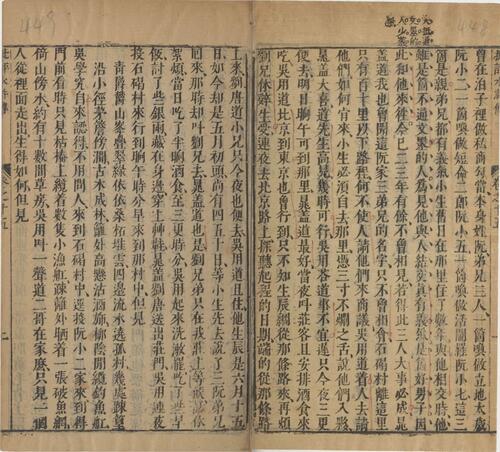 448
曾在泊子裡做私商勾當本身姓阮弟兄三人一箇喚做立地太歲
阮小二一箇喚做短命二郎阮小五一箇喚做活閻羅阮小七這三
箇是親弟兄都有義氣小生舊日在那里住了數年與他相交時他
雖是箇不通文墨的人爲見他與人結交真有義氣是箇好男子因
此和他來往今已二三年有餘不曾相見若得此三人大事必成晁
蓋道我也曾聞這阮家三弟兄的名字只不曾相會石碣村離這里
只有百十里以下路程何不使人請他們來商議吳用道着人去請
他們如何肯來小生必須自去那里憑三寸不爛之舌說他們入夥
晁蓋大喜道先生高見幾時可行吳用答道事不宜遲只今夜三更
便去明日晌午可到那里晁蓋道最好當夜叫莊客且安排酒食來
吃吳用道北京到東京也曾行到只不知生辰綱從那條路來再煩
劉兄休辭生受連夜去北京路上探聽起程的日期端的從那條路
449
上來劉唐道小兄只今夜也便去吳用道且住他生辰是六月十五
日如今却是五月初頭尚有四五十日等小生先去說了三阮弟兄
回來那時却叫劉兄去晁蓋道也是劉兄弟只在我莊上等候話休
絮煩當日吃了半晌酒食至三更時分吳用起來洗漱罷吃了些早
飯討了些銀兩藏在身邊穿上草鞋晁蓋劉唐送出莊門吳用連夜
投石碣村來行到晌午時分早來到那村中但見
青鬱鬱山峯疊翠綠依依桑柘堆雲四邊流水遶孤村幾處疎篁
沿小徑茅簷傍澗古木成林籬外高懸沽酒旆柳陰閒纜釣魚船
吳學究自來認得不用問人來到石碣村中逕投阮小二家來到得
門前看時只見枯樁上纜着數隻小漁船疎籬外晒着一張破魚網
倚山傍水約有十數間草房吳用叫一聲道二哥在家麼只見一個
人從裡面走出生得如何但見